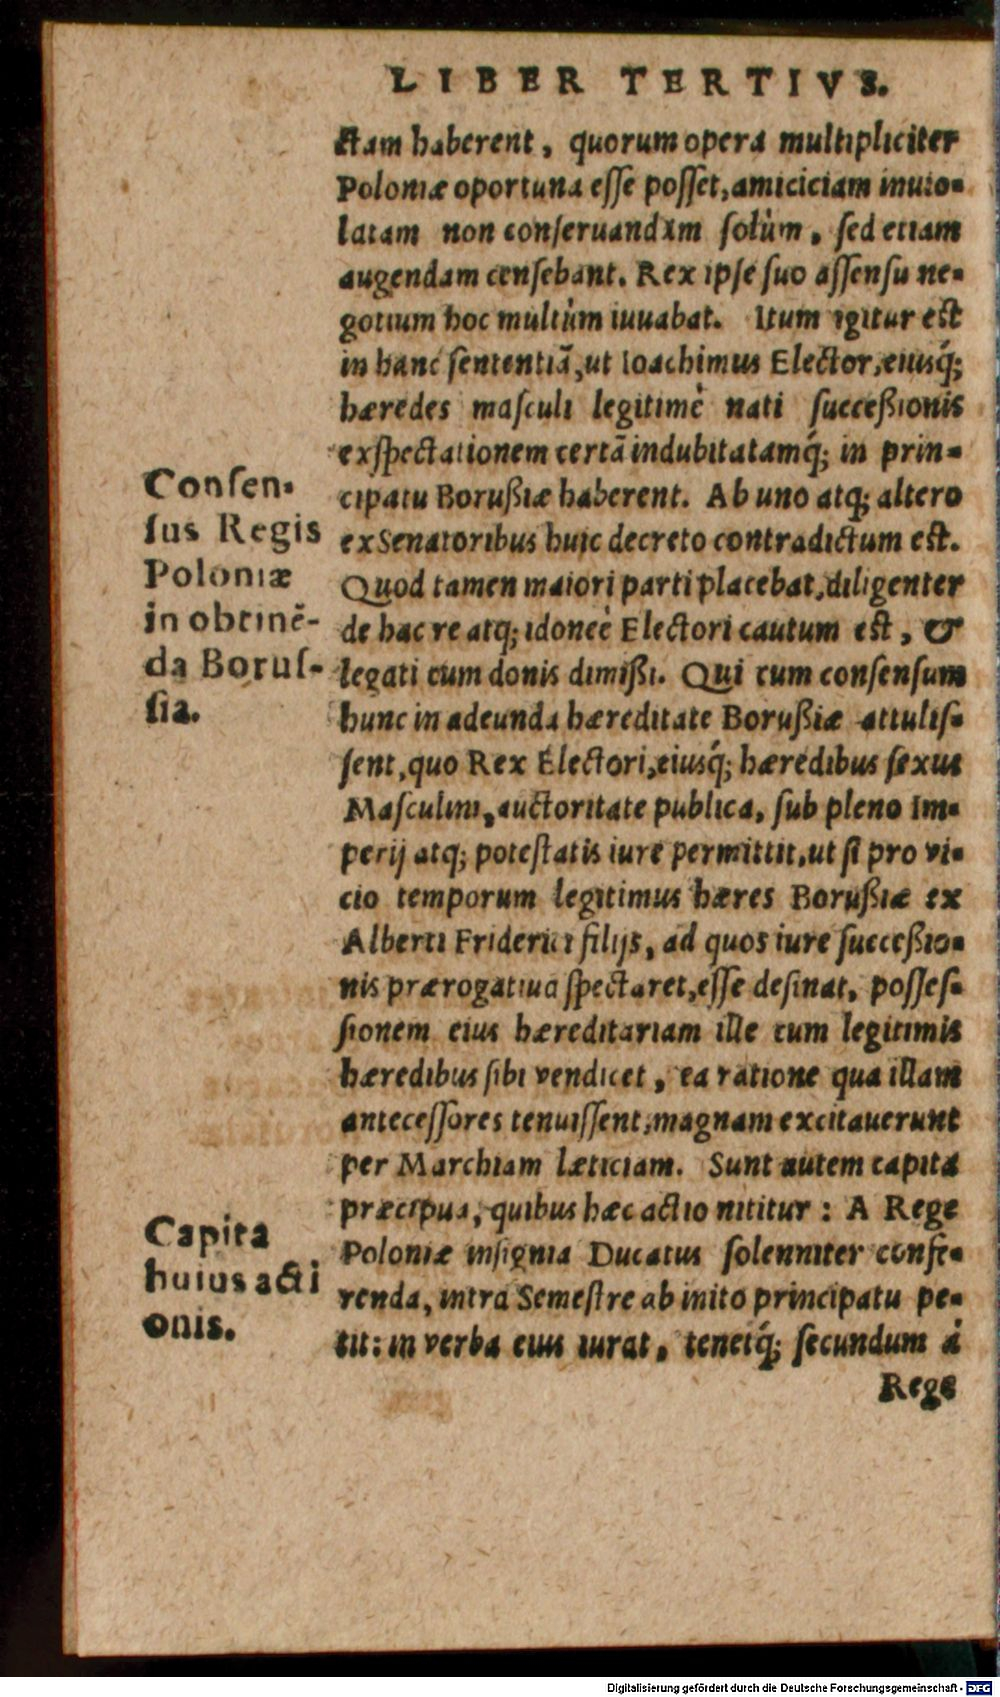 LIBER TERTIVS.
ctam haberent, quorum opera multipliciter
Poloniæ oportuna esse posset, amiciciam inuio-
latam non conseruandam solùm, sed etiam
augendam censebant. Rex ipse suo assensu ne-
gotium hoc multùm iuuabat. Itum igitur est
in hanc sententiã, ut Ioachimus Elector, eiusq́;
hæredes masculi legitimè nati successionis
exspectationem certã indubitatamq́; in prin-
cipatu Borussiæ haberent. Ab uno atq; altero
ex Senatoribus huic decreto contradictum est.
Quod tamen maiori parti placebat, diligenter
de hac re atq; idoneè Electori cautum est, &
legati cum donis dimissi. Qui cum consensum
hunc in adeunda hæreditate Borussiæ attulis-
sent, quo Rex Electori, eiusq́; hæredibus sexus
Masculini, auctoritate publica, sub pleno Im-
perij atq; potestatis iure permittit, ut si pro vi-
cio temporum legitimus hæres Borussiæ ex
Alberti Friderici filijs, ad quos iure successio-
nis prærogatiua spectaret, esse desinat, posses-
sionem eius hæreditariam ille cum legitimis
hæredibus sibi vendicet, ea ratione qua illam
antecessores tenuissent, magnam excitauerunt
per Marchiam læticiam. Sunt autem capita
præcipua, quibus hæc actio nititur: A Rege
Poloniæ insignia Ducatus solenniter confe-
renda, intra Semestre ab inito principatu pe-
tit: in verba eius iurat, tenetq́; secundum à
Rege
Consen-
sus Regis
Poloniæ
in obtinẽ-
da Borus-
sia.
Capita
huius acti
onis.
Digitalisierung gefördert durch die Deutsche Forschungsgemeinschaft - DFG